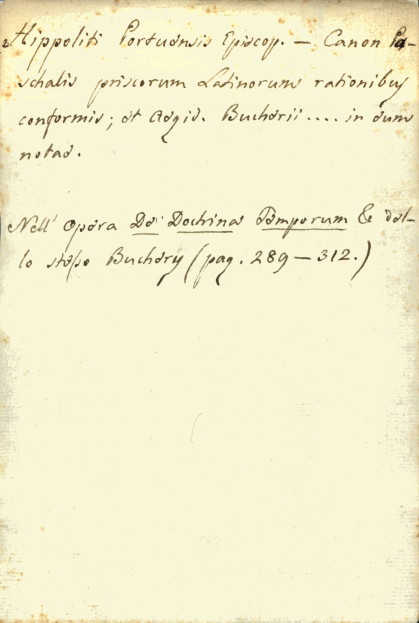 Hippoliti Portuensis Episcop. — Canon Pa-
schalis priscorum Latinorum rationibus
conformis; et Aegid. Bucherii .... in eum
notae.
Nell' opera De Doctrina Temporum &c del-
lo stesso Buchery (pag. 289 — 312.)